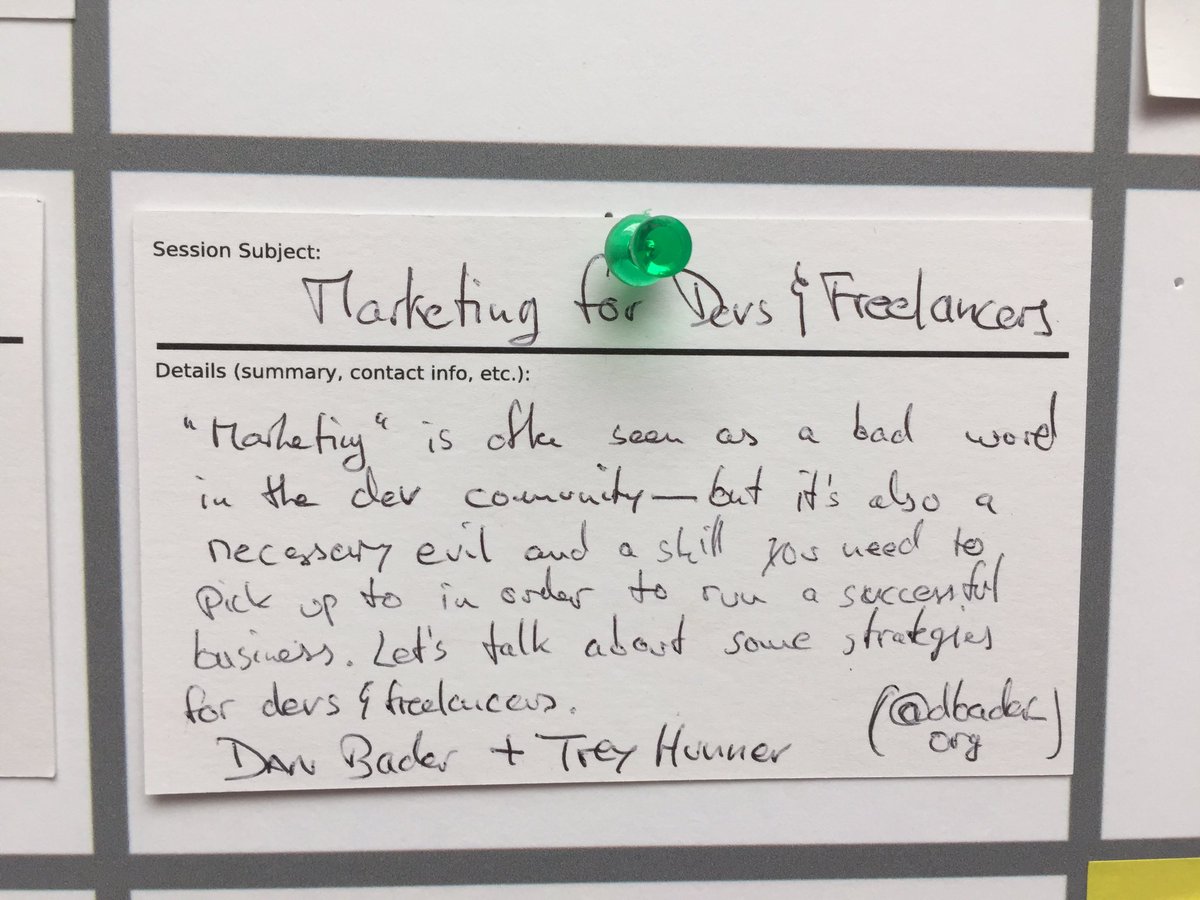 Session Subject:
Marketing for Devs & Freelancers
Details (summary, contact info, etc.):
"Marketing" is often seen as a bad word
in the dev community — but it's also a
necessary evil and a skill you need to
pick up to in order to run a successful
business. Let's talk about some strategies
for devs & freelancers.
(@dbader_
org)
Dan Bader + Trey Hunner